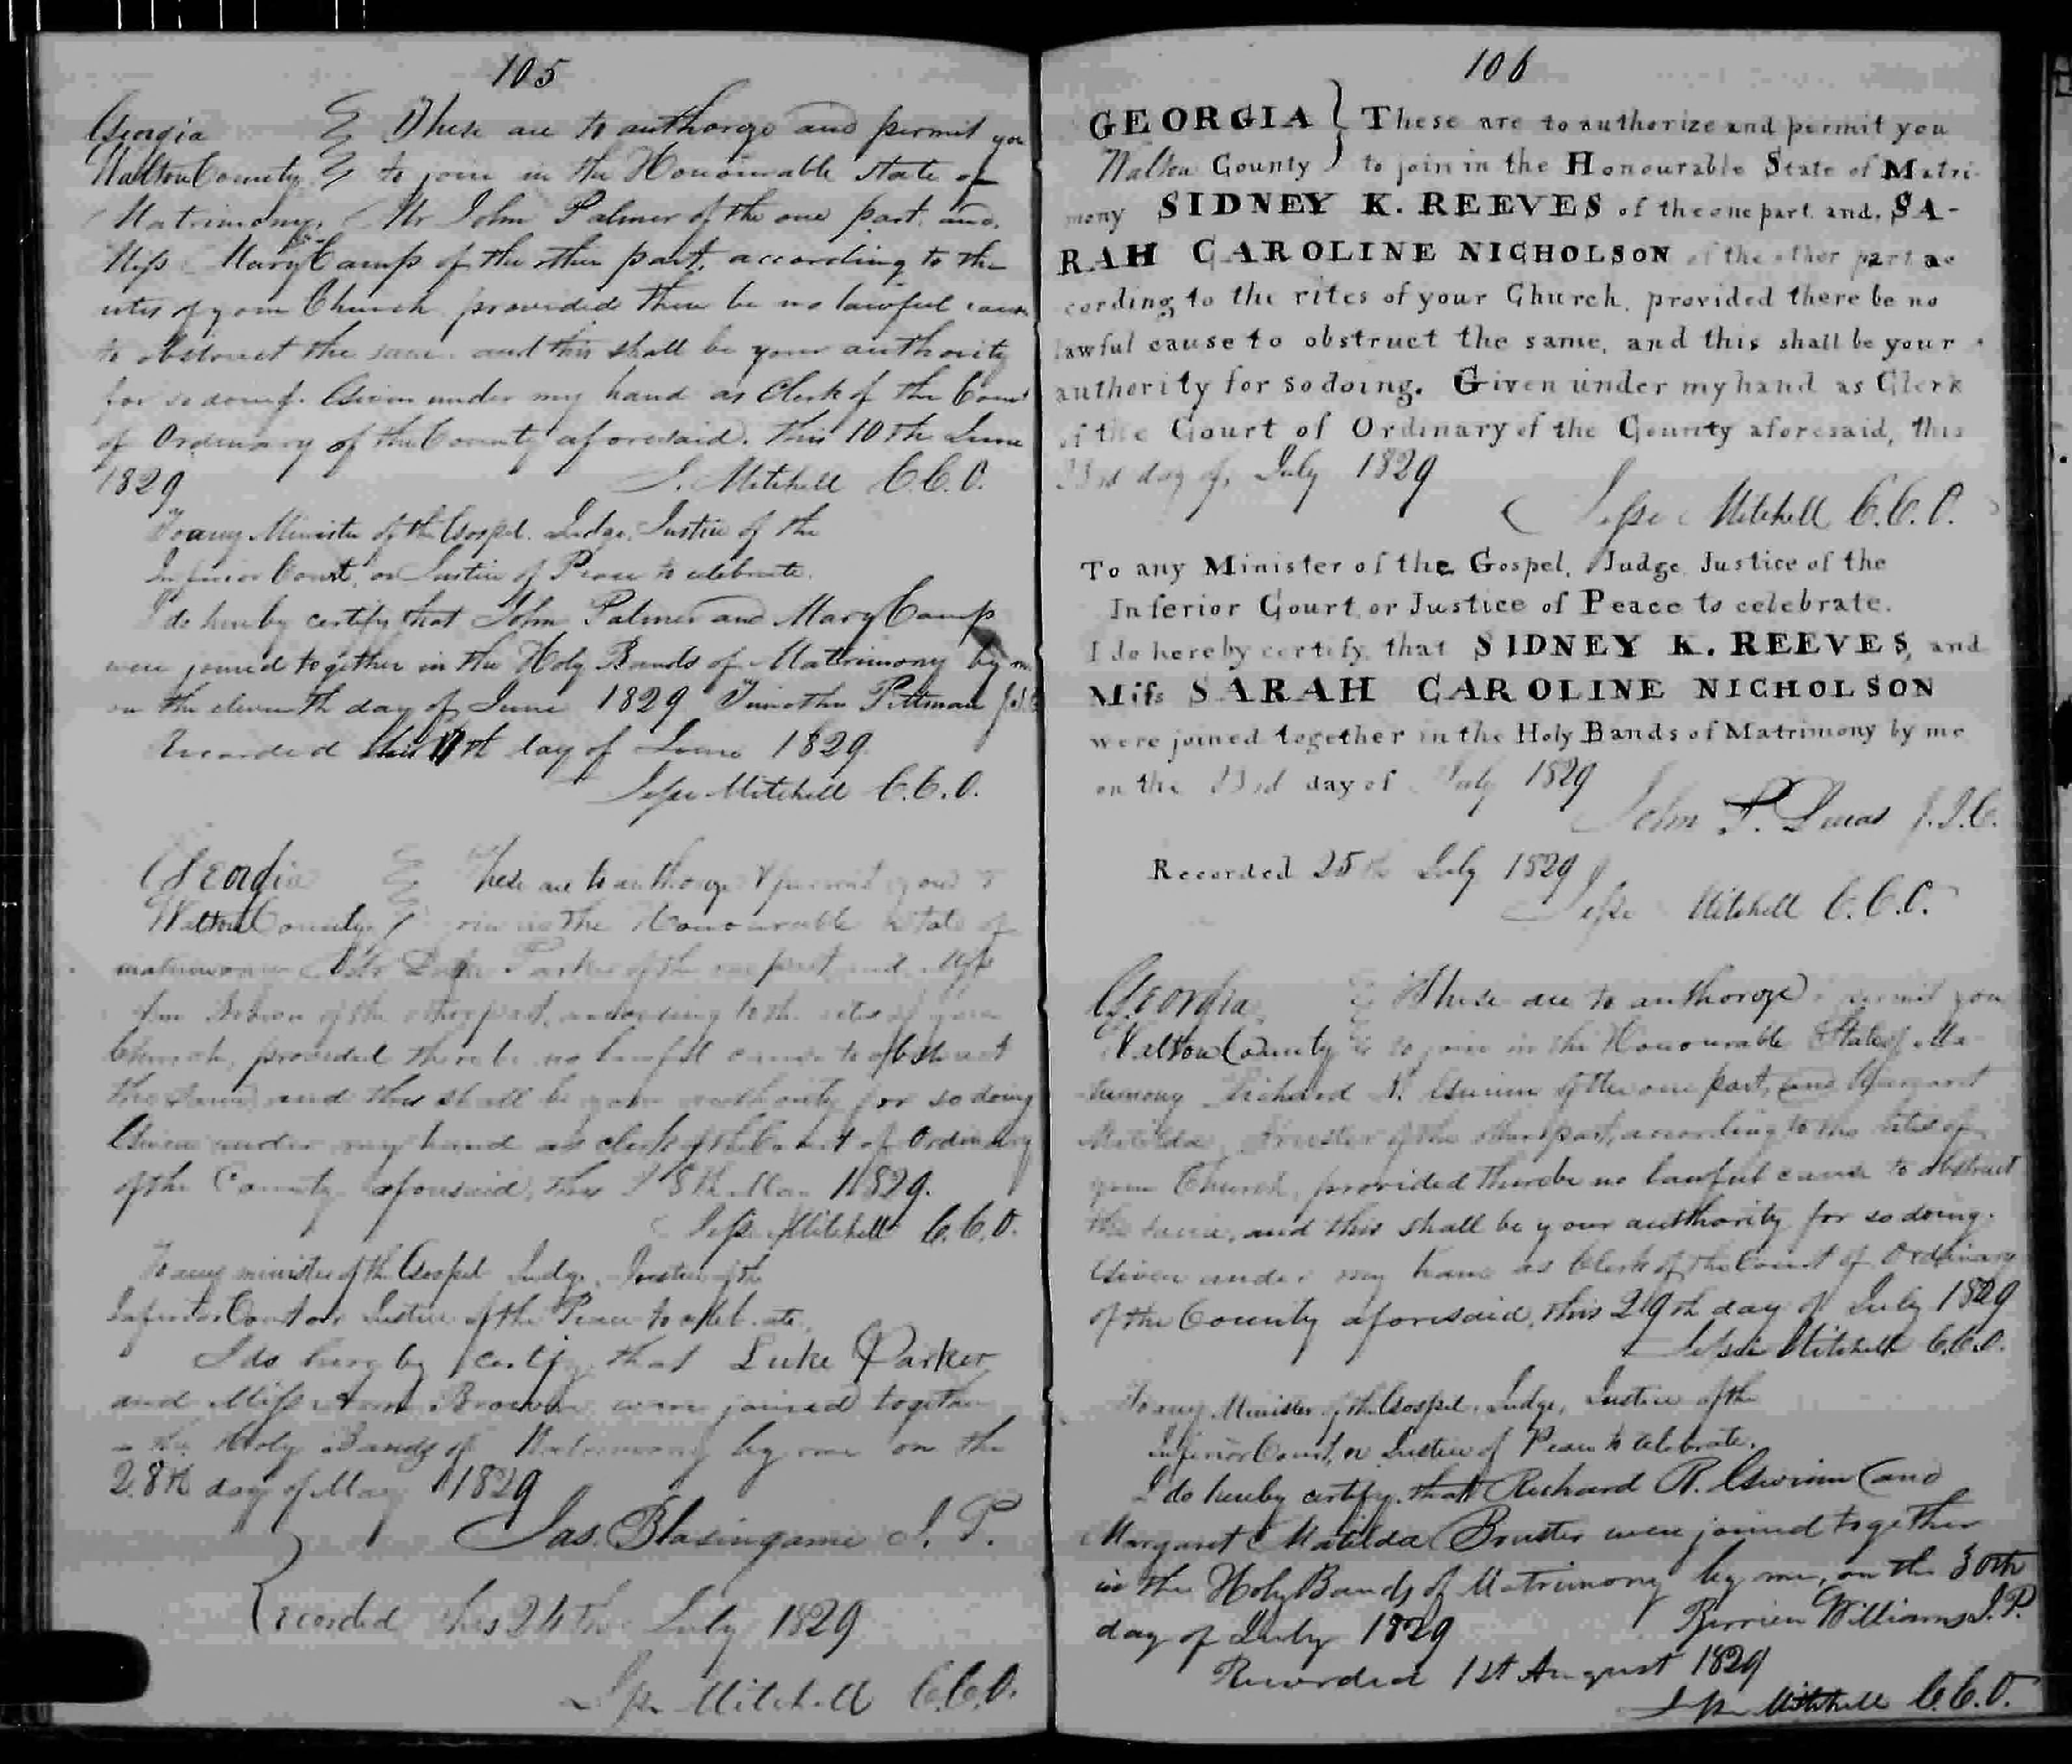 105
Georgia } These are to authorize and permit you
Walton County } to join in the Honourable state of
Matrimony, Mr John Palmer of the one part, and
Miss Mary Camp of the other part, according to the
rites of your Church provided there be no lawful cause
to obstruct the same and this shall be your authority
for so doing. Given under my hand as Clerk of the Court
of Ordinary of the County aforesaid, this 10th June
1829 J. Mitchell C.C.O.
To any Minister of the Gospel. Judge, Justice of the
Inferior Court, or Justice of Peace to celebrate.
I do hereby certify that John Palmer and Mary Camp
were joined together in the Holy Bands of Matrimony by me
on the eleventh day of June 1829 Timothy Pittman
Recorded this day of June 1829
Jesse Mitchell C.C.O.
Georgia } These are to authorize & permit you to
Walton County } join in the Honourable State of
matrimony Mr Luke Parker of the one part and Miss
Ann of the other part, according to the rites of your
Church, provided there be no lawful cause to obstruct
the same and this shall be your authority for so doing
Given under my hand as clerk of the Court of Ordinary
of the County aforesaid, this May 1829.
Jesse Mitchell C.C.O.
To any minister of the Gospel Judge, Justice of the
Inferior Court or Justice of the Peace to celebrate.
I do hereby certify that Luke Parker
and Miss Ann Brown were joined together
in the Holy Bands of Matrimony by me on the
28th day of May 1829
Jas. Blasingame J. P.
Recorded this 24th July 1829
Jesse Mitchell C.C.O.
106
GEORGIA } These are to authorize and permit you
Walton County } to join in the Honourable State of Matri-
mony SIDNEY K. REEVES of the one part and, SA-
RAH CAROLINE NICHOLSON of the other part ac
cording to the rites of your Church, provided there be no
lawful cause to obstruct the same, and this shall be your
authority for so doing. Given under my hand as Clerk
of the Court of Ordinary of the County aforesaid, this
23rd day of, July 1829
Jesse Mitchell C.C.O.
To any Minister of the Gospel, Judge, Justice of the
Inferior Court, or Justice of Peace to celebrate.
I do hereby certify, that SIDNEY K. REEVES, and
Miss SARAH CAROLINE NICHOLSON
were joined together in the Holy Bands of Matrimony by me
on the 23rd day of July 1829
John P. Lucas J.I.C.
Recorded 25th July 1829
Jesse Mitchell C.C.O.
Georgia } These are to authorize & permit you
Walton County } to join in the Honourable State of Ma-
trimony Richard R. Gwinn of the one part, and Margaret
Matilda Bruster of the other part, according to the rites of
your Church, provided there be no lawful cause to obstruct
the same, and this shall be your authority for so doing.
Given under my hand as Clerk of the Court of Ordinary
of the County aforesaid, this 29th day of July 1829
Jesse Mitchell C.C.O.
To any Minister of the Gospel, Judge, Justice of the
Inferior Court, or Justice of Peace to celebrate.
I do hereby certify, that Richard R. Gwinn and
Margaret Matilda Bruster were joined together
in the Holy Bands of Matrimony by me, on the 30th
day of July 1829 Berrien Williams J.P.
Recorded 1st August 1829
Jesse Mitchell C.C.O.